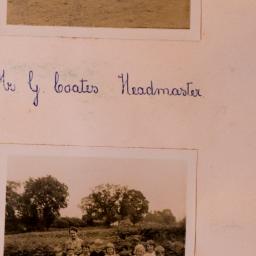 Mr G. Coates Headmaster